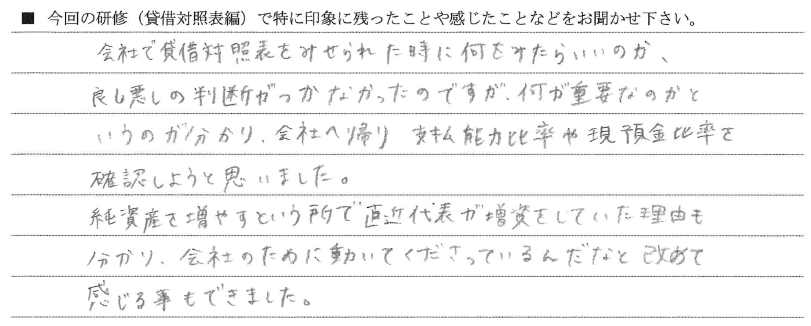 ■ 今回の研修（貸借対照表編）で特に印象に残ったことや感じたことなどをお聞かせ下さい。
会社で貸借対照表をみせられた時に何をみたらいいのか、
良し悪しの判断がつかなかったのですが、何が重要なのかと
いうのが分かり、会社へ帰り 支払能力比率や現預金比率を
確認しようと思いました。
純資産を増やすという所で直近代表が増資をしていた理由も
分かり、会社のために動いてくださっているんだなと改めて
感じる事もできました。